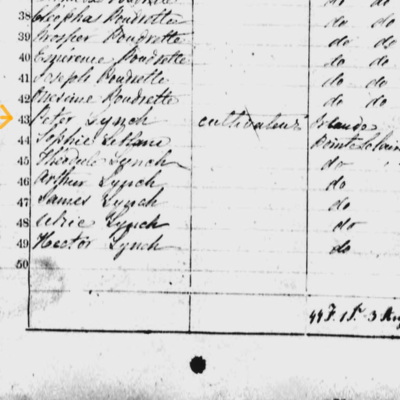 38 Cleophas Poudrette do do
39 Prosper Poudrette do do
40 Espérence Poudrette do do
41 Joseph Poudrette do do
42 Poudrette do do
43 Peter Lynch cultivateur Irlande
44 Sophie Leblanc Pointe Claire
45 Theodule Lynch do
46 Arthur Lynch do
47 James Lynch do
48 Ulric Lynch do
49 Hector Lynch do
50